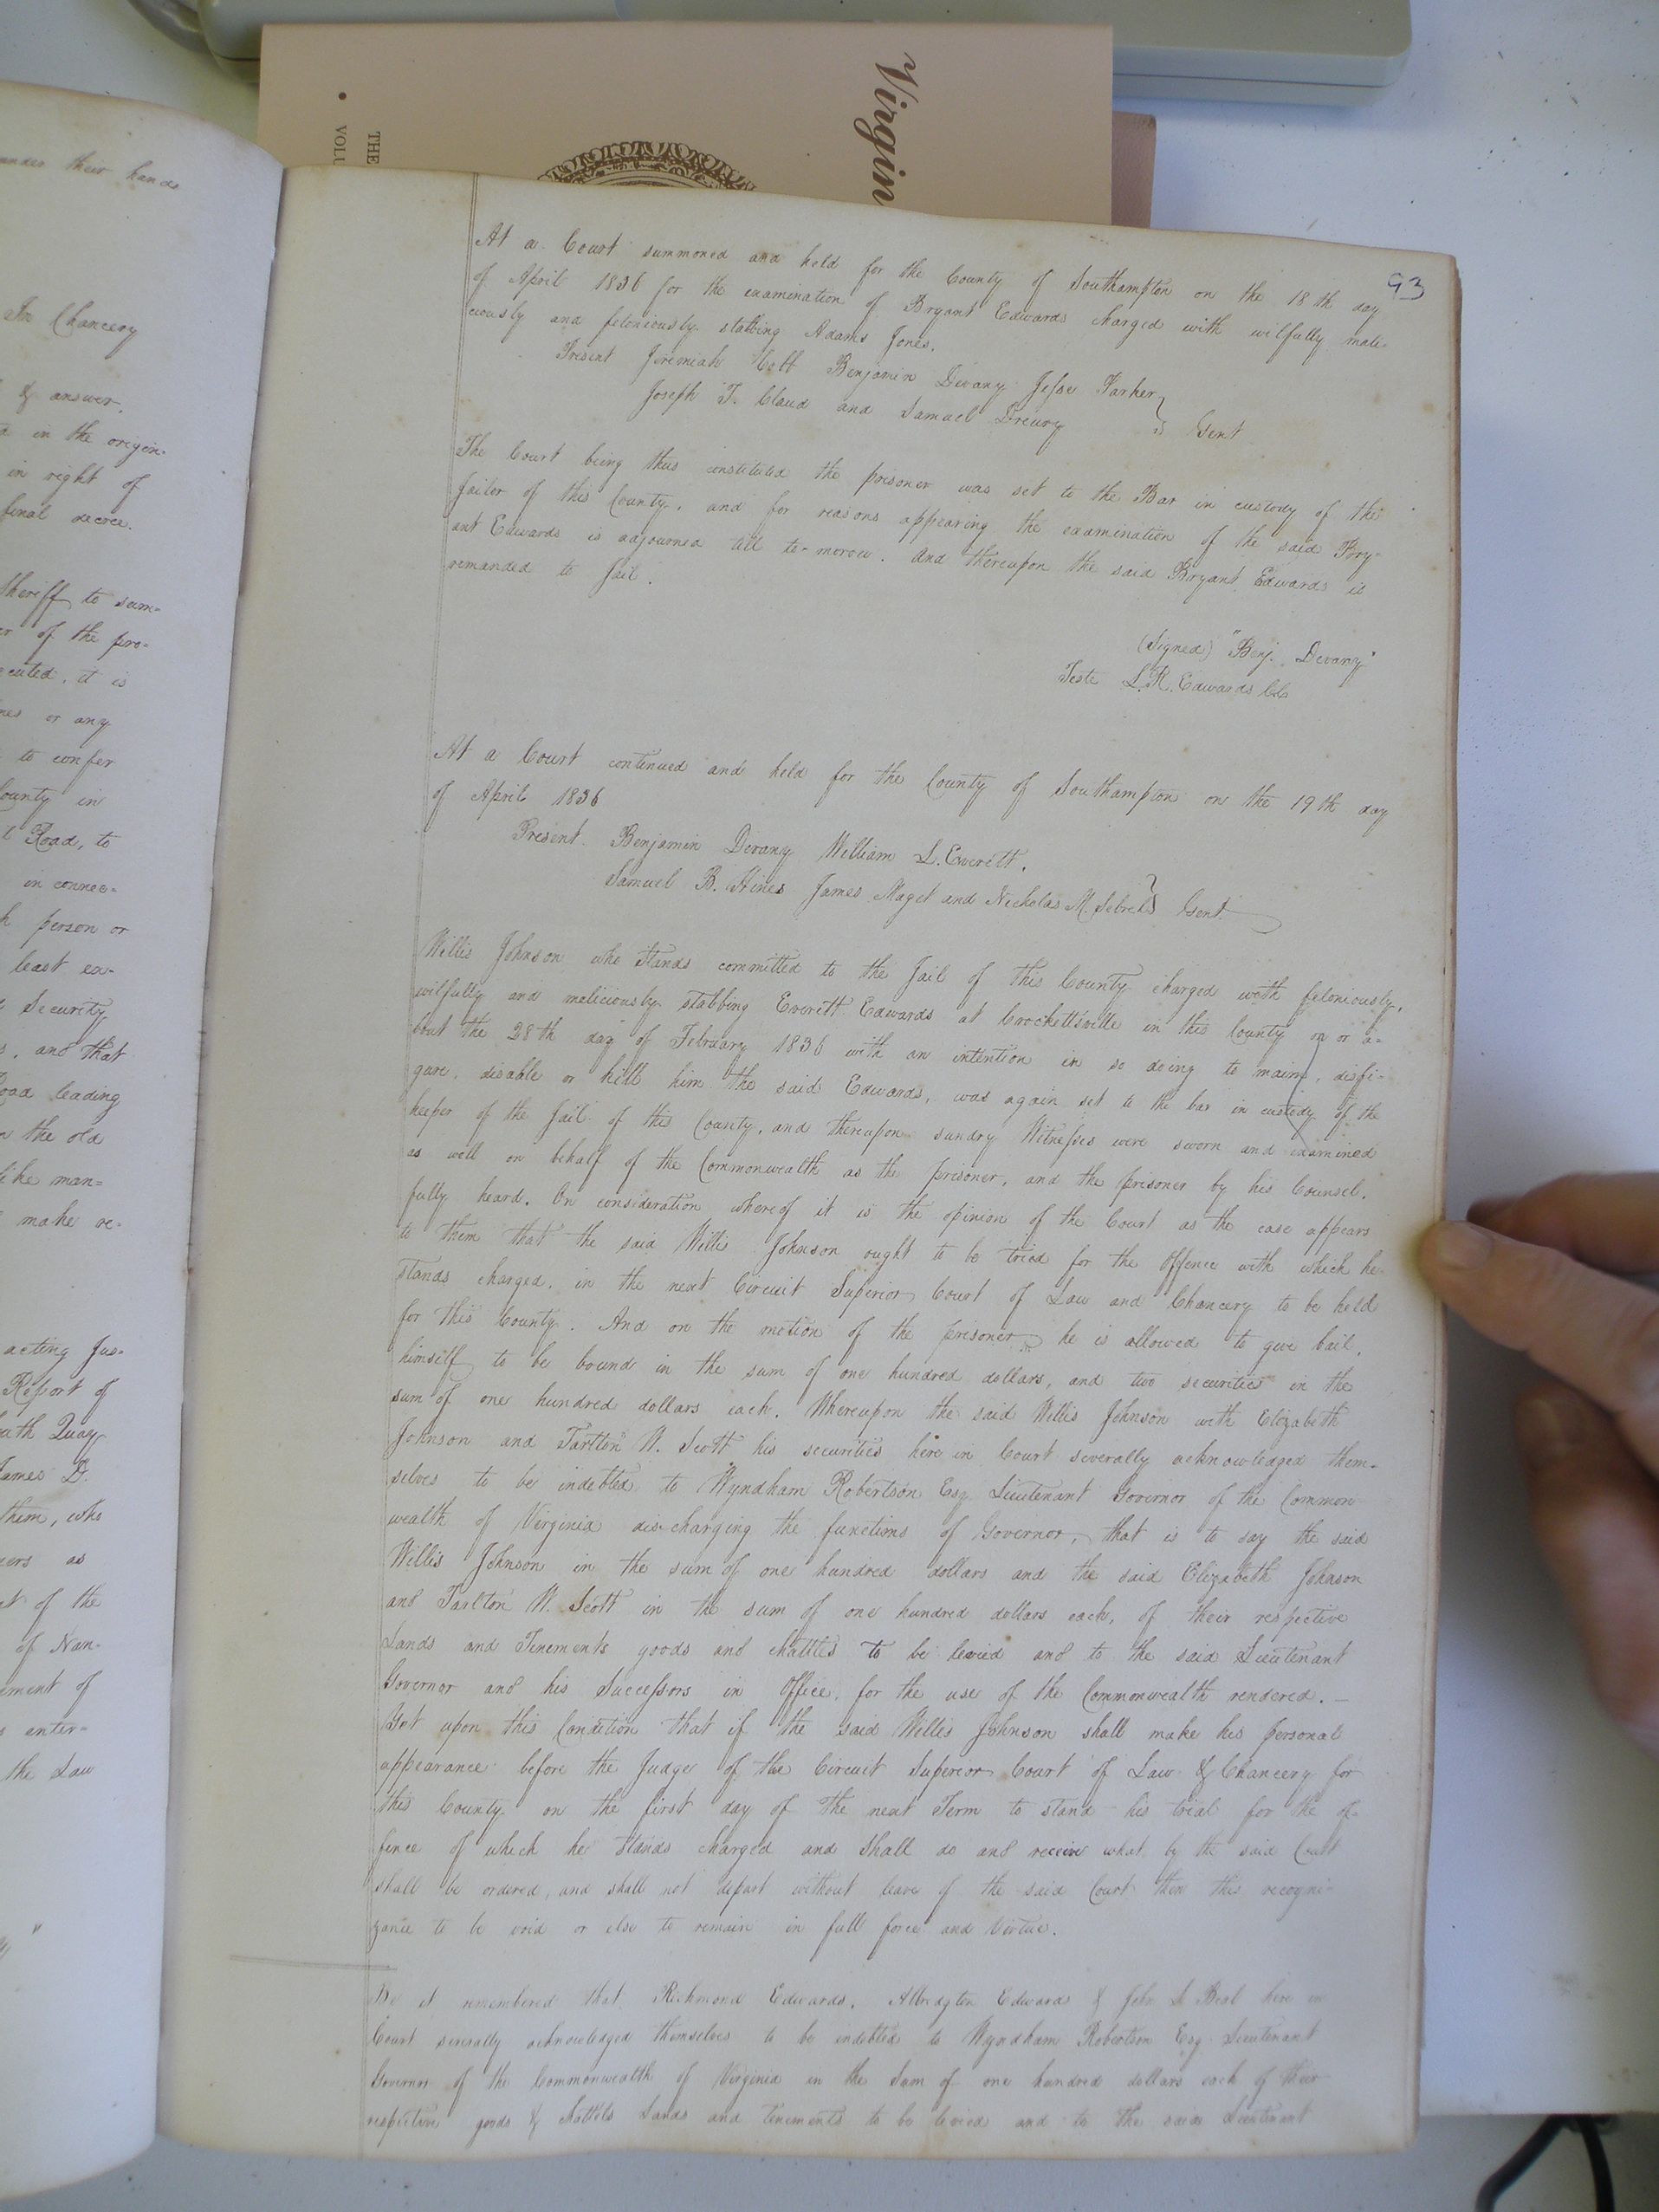 Virgin
THE
VOLU
ander their hands
In Chancery
& answer.
in the origin-
in right of
final decree.
Sheriff to sum-
of the pro-
ecuted, it is
or any
to confer
County in
Road, to
in connec-
person or
least ex-
Security
, and that
Road leading
the old
like man-
make re-
acting Jus-
Report of
South Quay
James D.
them, who
as
of the
of Nan-
ement of
enter-
the Law
93
At a Court summoned and held for the County of Southampton on the 18th day
of April 1836 for the examination of Bryant Edwards charged with wilfully mali-
ciously and feloniously stabbing Adams Jones.
Present Jeremiah Cobb Benjamin Devany Jesse Parker
Joseph T. Claud and Samuel Drewry } Gent
The Court being thus constituted the prisoner was set to the Bar in custody of the
Jailor of this County, and for reasons appearing the examination of the said Bry-
ant Edwards is adjourned till to-morow. And thereupon the said Bryant Edwards is
remanded to Jail.
(Signed) "Benj. Devany"
Teste L.R. Edwards Clk
At a Court continued and held for the County of Southampton on the 19th day
of April 1836
Present Benjamin Devany William L. Everett,
Samuel B. Hines James Maget and Nicholas M. Sebrell } Gent
Willis Johnson who Stands committed to the Jail of this County charged with feloniously,
wilfully and maliciously stabbing Everett Edwards at Crockettsville in this County on or a-
bout the 28th day of February 1836 with an intention in so doing to maim, disfi-
gure, disable or kill him the said Edwards, was again set to the bar in custody of the
keeper of the Jail of this County, and thereupon sundry Witnesses were sworn and examined
as well on behalf of the Commonwealth as the prisoner, and the prisoner by his Counsel.
fully heard. On consideration whereof it is the opinion of the Court as the case appears
to them that the said Willis Johnson ought to be tried for the Offence with which he
stands charged, in the next Circuit Superior Court of Law and Chancery to be held
for this County. And on the motion of the prisoner, he is allowed to give bail,
himself to be bound in the sum of one hundred dollars, and two securities in the
sum of one hundred dollars each. Whereupon the said Willis Johnson with Elizabeth
Johnson and Tarlton W. Scott his securities here in Court severally acknowledged them-
selves to be indebted to Wyndham Robertson Esq Lieutenant Governor of the Common-
wealth of Virginia discharging the functions of Governor, that is to say the said
Willis Johnson in the sum of one hundred dollars and the said Elizabeth Johnson
and Tarlton W. Scott in the sum of one hundred dollars each, of their respective
Lands and Tenements goods and chattles to be levied and to the said Lieutenant
Governor and his Successors in Office, for the use of the Commonwealth rendered. —
Yet upon this Condition that if the said Willis Johnson shall make his personal
appearance before the Judge of the Circuit Superior Court of Law & Chancery for
this County on the first day of the next Term to stand his trial for the of-
fence of which he stands charged and shall do and receive what by the said Court
shall be ordered, and shall not depart without leave of the said Court then this recogni-
zance to be void or else to remain in full force and Virtue.
Be it remembered that Richmond Edwards, Albridgton Edwards & John S Beal here in
Court severally acknowledged themselves to be indebted to Wyndham Robertson Esq Lieutenant
Governor of the Commonwealth of Virginia in the Sum of one hundred dollars each of their
respective goods & chattels Lands and tenements to be levied and to the said Lieutenant